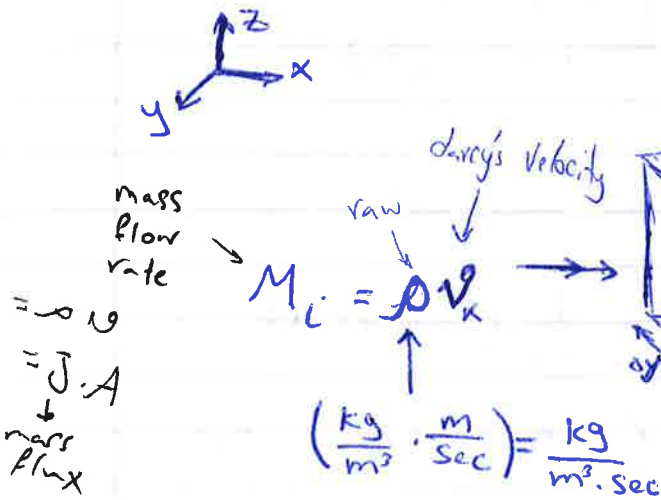 z
x
y
darcy's velocity
mass
flow
rate
raw
M_i = ρ v_x
= ρ v
= J . A
mass
flux
Δy
(kg/m³ · m/sec) = kg/m³. sec